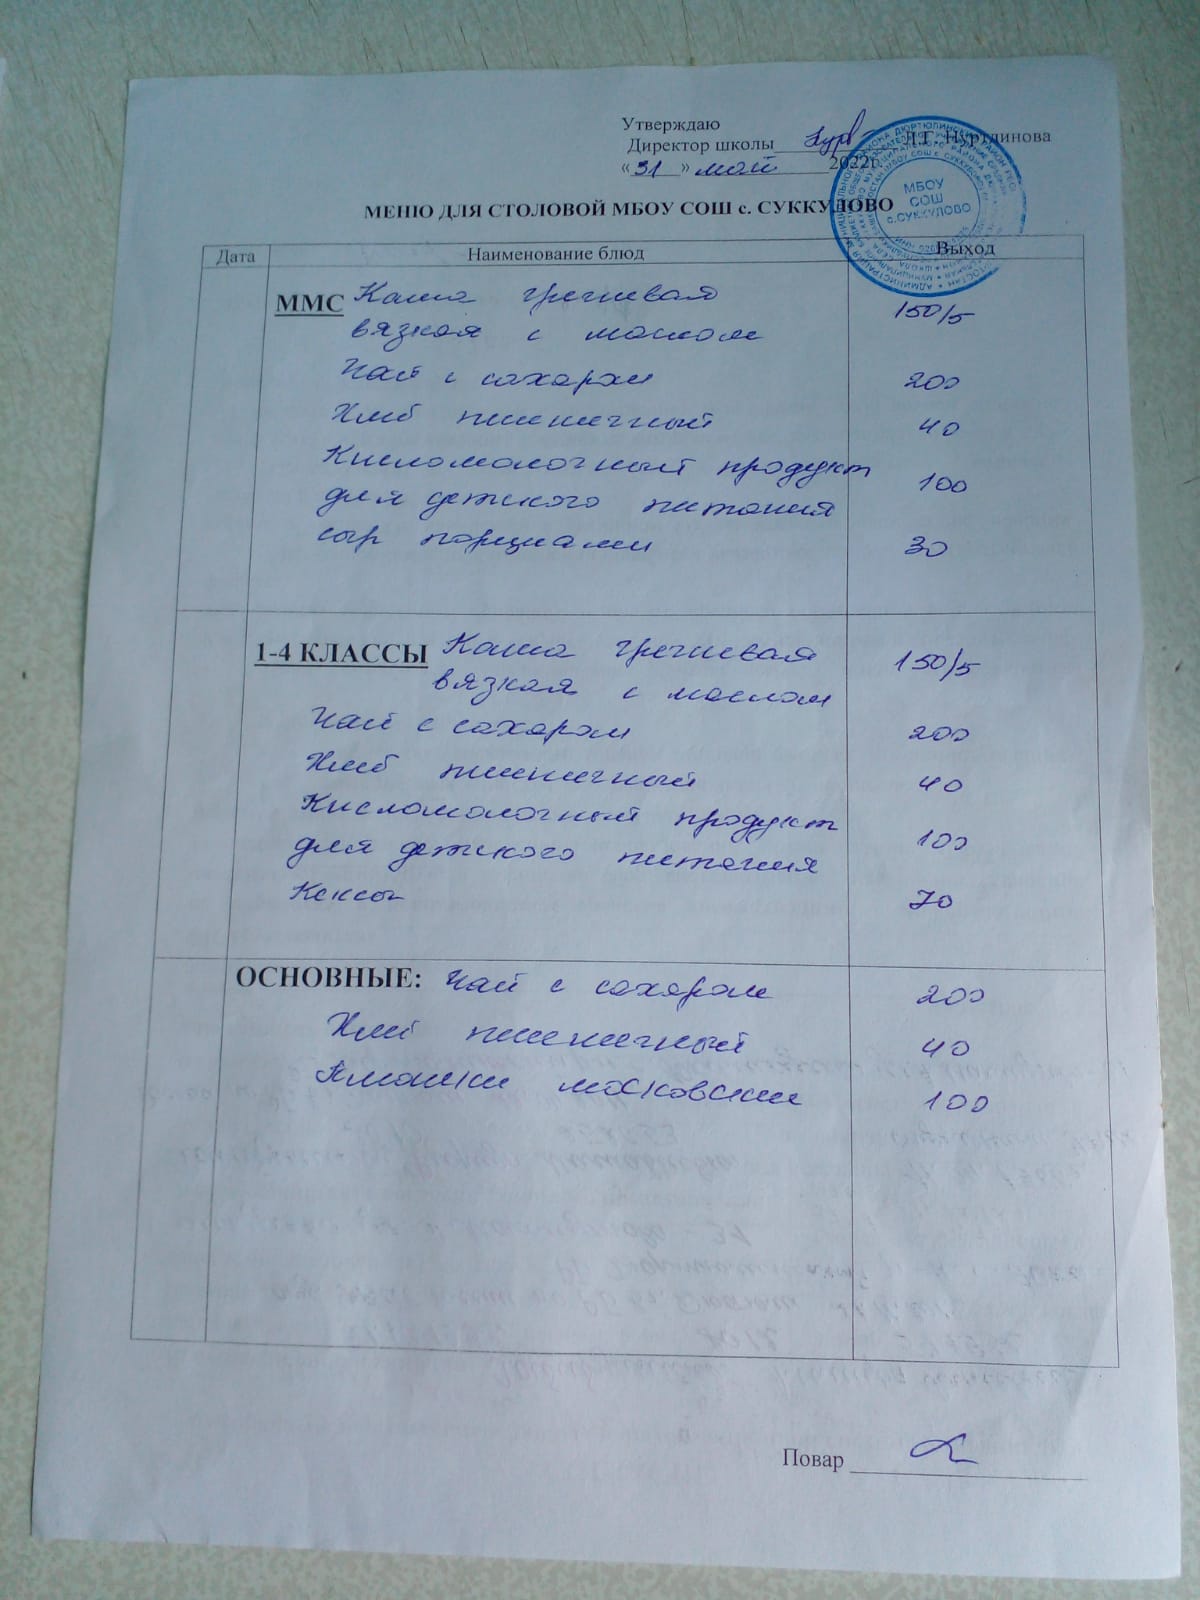 Утверждаю
Директор школы Л.Г. Нуртдинова
« 31 » май 2022г.
МБОУ
СОШ
с.СУККУЛОВО
МЕНЮ ДЛЯ СТОЛОВОЙ МБОУ СОШ с. СУККУЛОВО
Дата Наименование блюд Выход
ММС Каша гречневая 150/5
вязкая с маслом
Чай с сахаром 200
Хлеб пшеничный 40
Кисломолочный продукт 100
для детского питания
сыр порциами 30
1-4 КЛАССЫ Каша гречневая 150/5
вязкая с маслом
Чай с сахаром 200
Хлеб пшеничный 40
Кисломолочный продукт 100
для детского питания
Кексы 70
ОСНОВНЫЕ: Чай с сахаром 200
Хлеб пшеничный 40
московские 100
Повар